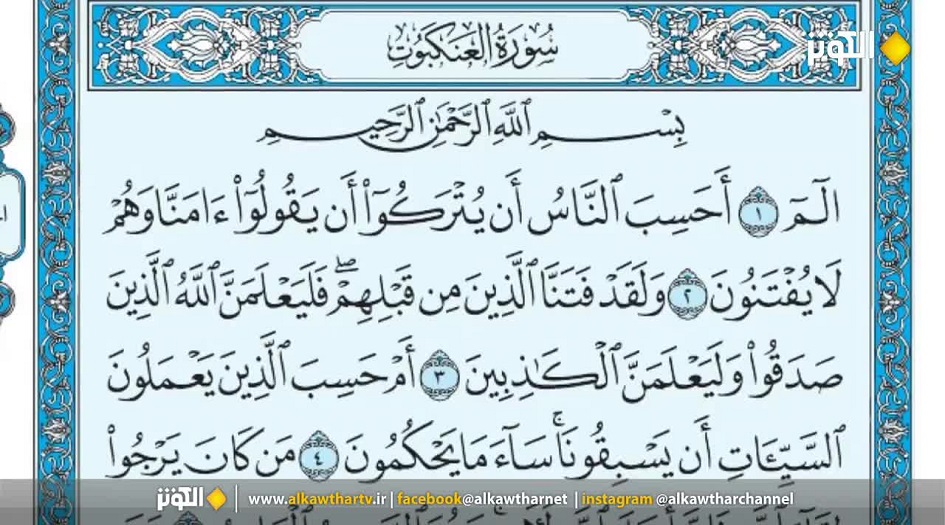 سُورَةُ الْعَنكَبُوتِ
الكوثر
بِسْمِ ٱللَّهِ ٱلرَّحْمَٰنِ ٱلرَّحِيمِ
الٓمٓ ١ أَحَسِبَ ٱلنَّاسُ أَن يُتْرَكُوٓا۟ أَن يَقُولُوٓا۟ ءَامَنَّا وَهُمْ
لَا يُفْتَنُونَ ٢ وَلَقَدْ فَتَنَّا ٱلَّذِينَ مِن قَبْلِهِمْ ۖ فَلَيَعْلَمَنَّ ٱللَّهُ ٱلَّذِينَ
صَدَقُوا۟ وَلَيَعْلَمَنَّ ٱلْكَـٰذِبِينَ ٣ أَمْ حَسِبَ ٱلَّذِينَ يَعْمَلُونَ
ٱلسَّيِّـَٔاتِ أَن يَسْبِقُونَا ۚ سَآءَ مَا يَحْكُمُونَ ٤ مَن كَانَ يَرْجُوا۟
الكوثر | www.alkawthartv.ir | facebook@alkawtharnet | instagram @alkawtharchannel